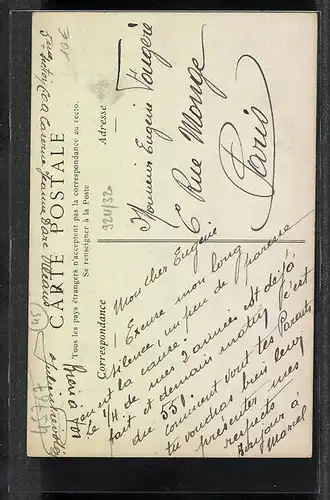 CARTE POSTALE
Tous les pays étrangers n'acceptent pas la correspondance au recto.
Se renseigner à la Poste
Correspondance
Adresse
Mon cher Eugène
Excuse mon long
silence, un peu de paresse
en est la cause.
Le 1/4 de mes 2 années est déjà
fait et demain matin c'est
du 551.
comment vont tes Parents
tu voudras bien leur
présenter mes
respects
Bonjour à
Marcel
Monsieur Eugène Fougere
6 Rue Monge
Paris
924/32